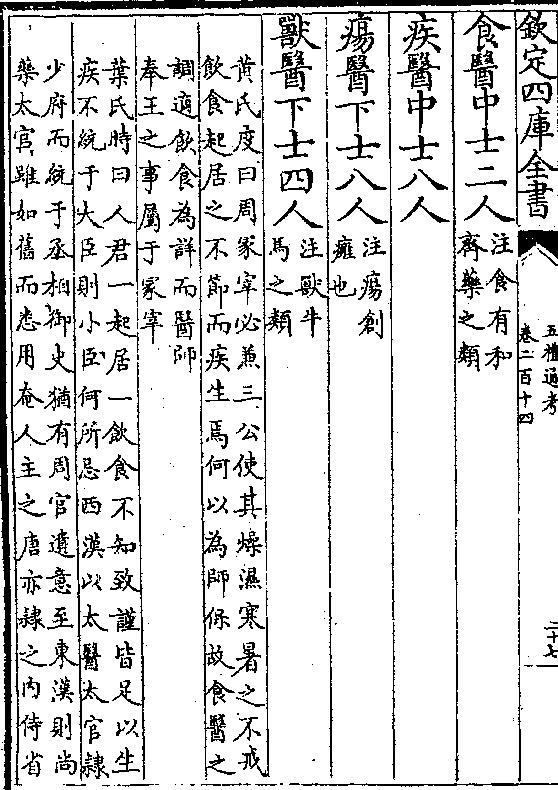 欽定四庫全書
五禮通考
卷二百十四
二十七
食醫中士二人
注食有和
齊藥之類
疾醫中士八人
瘍醫下士八人
注瘍創
癰也
獸醫下士四人
注獸牛
馬之類
黄氏度曰周冢宰必兼三公使其燥濕寒暑之不戒
飲食起居之不節而疾生焉何以為師保故食醫之
調適飲食為詳而醫師
奉王之事屬于冢宰
葉氏時曰人君一起居一飲食不知致謹皆足以生
疾不統于大臣則小臣何所忌西漢以太醫太官隸
少府而統于丞相御史猶有周官遺意至東漢則尚
藥太官雖如舊而悉用奄人主之唐亦隸之内侍省